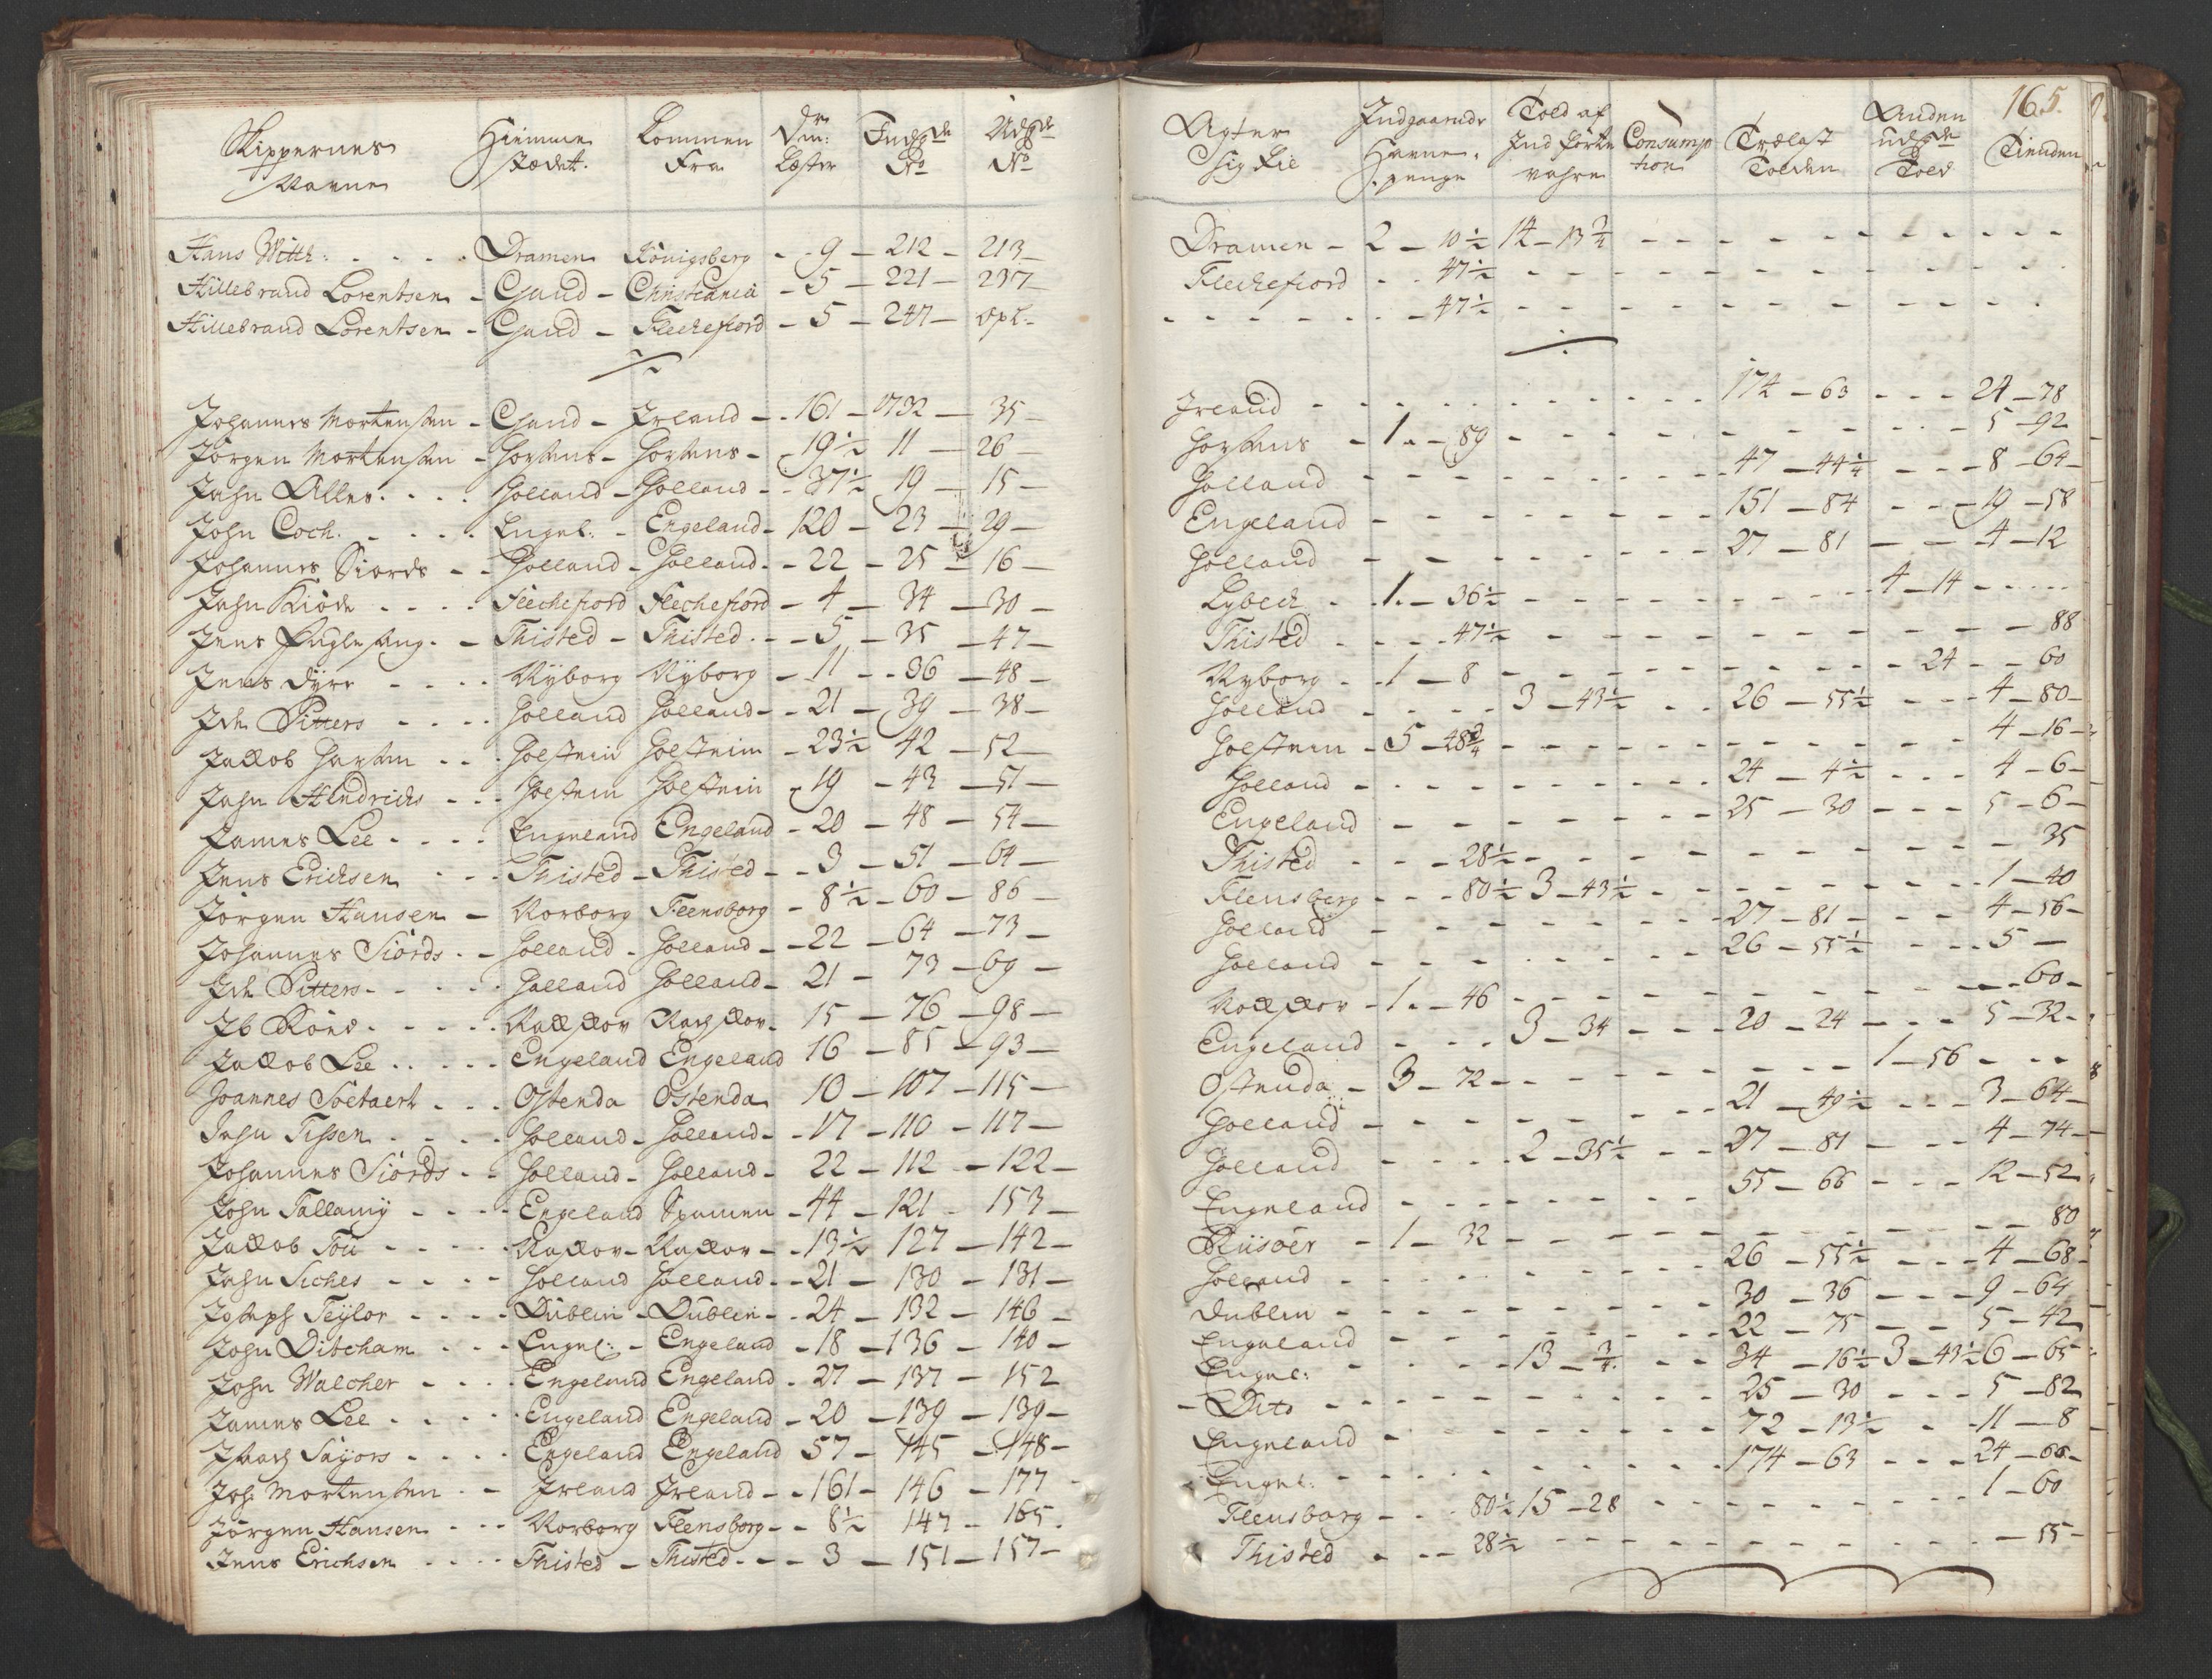 Skippernes Navne	Hiemme stædet.	Kommen Fra	Drn: Læster	Indgde No	Udgde No
Hans Witth: - - - - Dramen Königsberg - 9 - 212 - 213 -
Hillebrand Lorentsen - Egund - Christiania - 5 - 221 - 237
Hillebrand Lorentsen - Egund - Flechefiord - 5 - 247 - Opl.
Johannes Mortensen - Egund - Irland - 161 - 1732 - 35 -
Jørgen Mortensen - Horsens - Horsens - 19½ 11 - 26 -
Jahn Alles - - - Holland - Holland - 37½ 19 - 15 -
John Coch. - - - - Engel: - Engeland - 120 - 23 - 29 -
Johannes Siords - - Holland - Holland - 22 - 25 - 16 -
Jahn Kiöde - - - Flechefiord Flechefiord - 4 - 34 - 30 -
Jens Fuglesang - - Thisted - Thisted - 5 - 35 - 47 -
Jens Dyre - - - Nyborg Nyborg - 11 - 36 - 48 -
Ide Pitters - - - Holland Holland - 21 - 39 - 38 -
Jacob Harsen - - Holstein Holstein - 23½ 42 - 52 -
Jahn Hendrichs - - - Holstein Holstein - 19 - 43 - 51 -
James Lee - - - - Engeland Engeland - 20 - 48 - 54 -
Jens Erichsen - - - Thisted - Thisted - 3 - 51 - 64 -
Jørgen Hansen - Norborg Flensborg - 8½ - 60 - 86 -
Johannes Siörds - - Holland - Holland - 22 - 64 - 73 -
Ide Pitters - - - - Holland Holland - 21 - 73 - 69 -
Ib - - - - 15 - 76 - 98 -
Jacob Lee - - - - Engeland Engeland 16 - 85 - 93 -
Joannes Soetaert - - - Ostenda Ostenda 10 - 107 - 115 -
Jahn Tissen - - - - Holland - Holland - 17 - 110 - 117 -
Johannes Siörds - - Holland - Holland - 22 - 112 - 122 -
John Tallamy - - - - Engeland Spanien - 44 - 121 - 153 -
Jacob Toü - - - - - 13½ 127 - 142 -
Jahn Siches - - - - Holland Holland - 21 - 130 - 131 -
Joseph Teylor - - - - Dublin - Dublin - 24 - 132 - 146 -
John Ditcham - - - Engel: - Engeland - 18 - 136 - 140 -
John Walcher - - - - Engeland Engeland - 27 - 137 - 152
James Lee - - - - Engeland Engeland - 20 - 139 - 139 -
Isaach Sayors - - - - Engeland Engeland 57 - 145 - 148 -
Joh Mortensen - - Irland Irland - 161 - 146 - 177 -
Jørgen Hansen - - - Norborg Flensborg - 8½ 147 - 165
Jens Erichsen - - - - Thisted - Thisted - - 3 - 151 - 157 -
165.
Agter sig til	Indgaaende Havne penge	Told af Ind förte vahre	Consumption	Trælast Tolden	Anden udgde Told	Tienden
Dramen - 2 - 10½ 14 - 13¾ - - - - - -
Flechefiord - - 47½ - - - - - -
- - - - - - 47½ - - - - - -
Irland - - - - - - - 174 - 63 - - - 24 - 78
Horsens - 1 - 89 - - - - - - 5 - 92
Holland - - - - - - - 47 - 44¼ - - - 8 - 64 -
Engeland - - - - - - - 151 - 84 - - - 19 - 58
Holland - - - - - - - 27 - 81 - - - 4 - 12
Lybech - 1 - 36½ - - - - - - 4 - 14 - - -
Thisted - - - 47½ - - - - - - - 88
Nyborg - 1 - 8 - - - - - - - 24 - - 60
Holland - - - - 3 - 43½ - - 26 - 55½ - - - 4 - 80 -
Holstein - 5 - 48¾ - - - - - - 4 - 16 -
Holland - - - - - - - 24 - 4½ - - - 4 - 6 -
Engeland - - - - - - - 25 - 30 - - - 5 - 6 -
Thisted - - - 28½ - - - - - - - 35
Flensberg - - - 80½ 3 - 43½ - - - - - 1 - 40
Holland - - - - - - - 27 - 81 - - - 4 - 56 -
Holland - - - - - - - 26 - 55½ - - - 5 -
- 1 - 46 - - - - - - - 60 -
Engeland - - - 3 - 34 - - - 20 - 24 - - - 5 - 32 -
Ostenda - 3 - 72 - - - - - - 1 - 56 - - -
Holland - - - - - - - 21 - 49½ - - - 3 - 64 -
Holland - - - - 2 - 35½ - - 27 - 81 - - - 4 - 74 -
Engeland - - - - - - - 55 - 66 - - - 12 - 52
Riisöer - 1 - 32 - - - - - - - 80
Holland - - - - - - - 26 - 55½ - - - 4 - 68 -
Dublin - - - - - - - 30 - 36 - - - 9 - 64
Engeland - - - - - - - 22 - 75 - - 5 - 42
Engel: - - - - 13 - ¾ - - 34 - 16½ 3 - 43½ 6 - 65
- Dito - - - - - - - 25 - 30 - - - 5 - 82
Engeland - - - - - - - 72 - 13½ - - 11 - 8
Engel: - - - - - - - 174 - 63 - - - 24 - 66 -
Flensborg - - - 80½ 15 - 28 - - - - - 1 - 60
Thisted - - - 28½ - - - - - - - 55 -